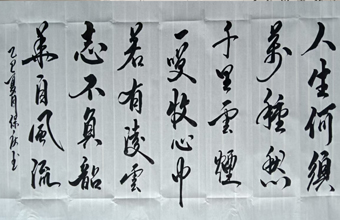 人生何须
万种愁
千里云烟
一叹收心中
若有凌云
志不负韶
华自风流
乙巳夏月保欣书